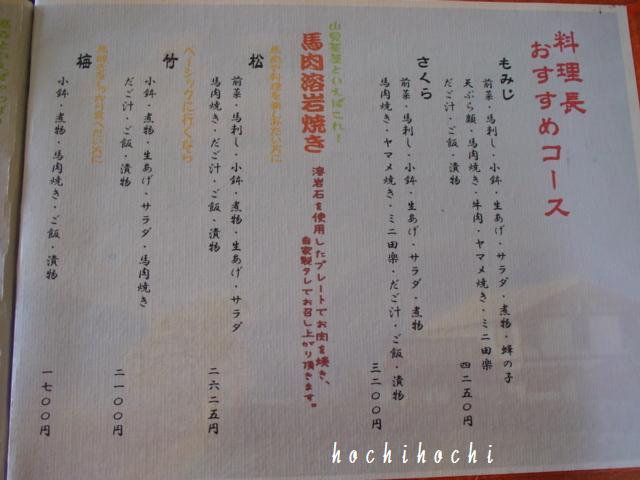 料理長
おすすめコース
もみじ
前菜・馬刺し・小鉢・生あげ・サラダ・煮物・蜂の子
天ぷら類・馬肉焼き・牛肉・ヤマメ焼き・ミニ田楽
だご汁・ご飯・漬物
四二五〇円
さくら
前菜・馬刺し・小鉢・生あげ・サラダ・煮物
馬肉焼き・ヤマメ焼き・ミニ田楽・だご汁・ご飯・漬物
三二〇〇円
山見茶屋といえばこれ!
馬肉溶岩焼き
溶岩石を使用したプレートでお肉を焼き、
自家製タレでお召し上がり頂きます。
馬肉や料理を楽しみたい方に
松
前菜・馬刺し・小鉢・煮物・生あげ・サラダ
馬肉焼き・だご汁・ご飯・漬物
二六二五円
ベーシックに行くなら
竹
小鉢・煮物・生あげ・サラダ・馬肉焼き
だご汁・ご飯・漬物
二一〇〇円
馬焼きをしっかり食べたい方に
梅
小鉢・煮物・馬肉焼き・ご飯・漬物
一七〇〇円
hochihochi